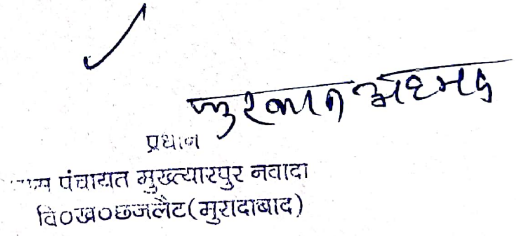 फुरकान अहमद
प्रधान
ग्राम पंचायत मुख्त्यारपुर नवादा
वि०ख०छजलैट(मुरादाबाद)